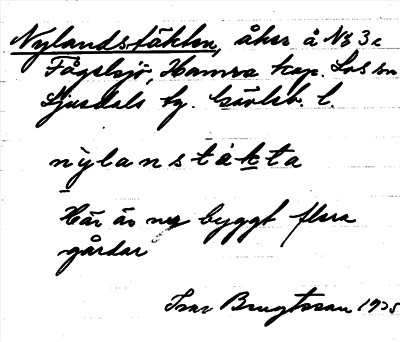 Nylandstäkten, åker å No 3 c
Fågelsjö, Hamra kap. Los sn
Ljusdals tg. Gävleb. l.
nylanstäkta
Här är ny byggt flera
gårdar
Isac Bengtsson 1925